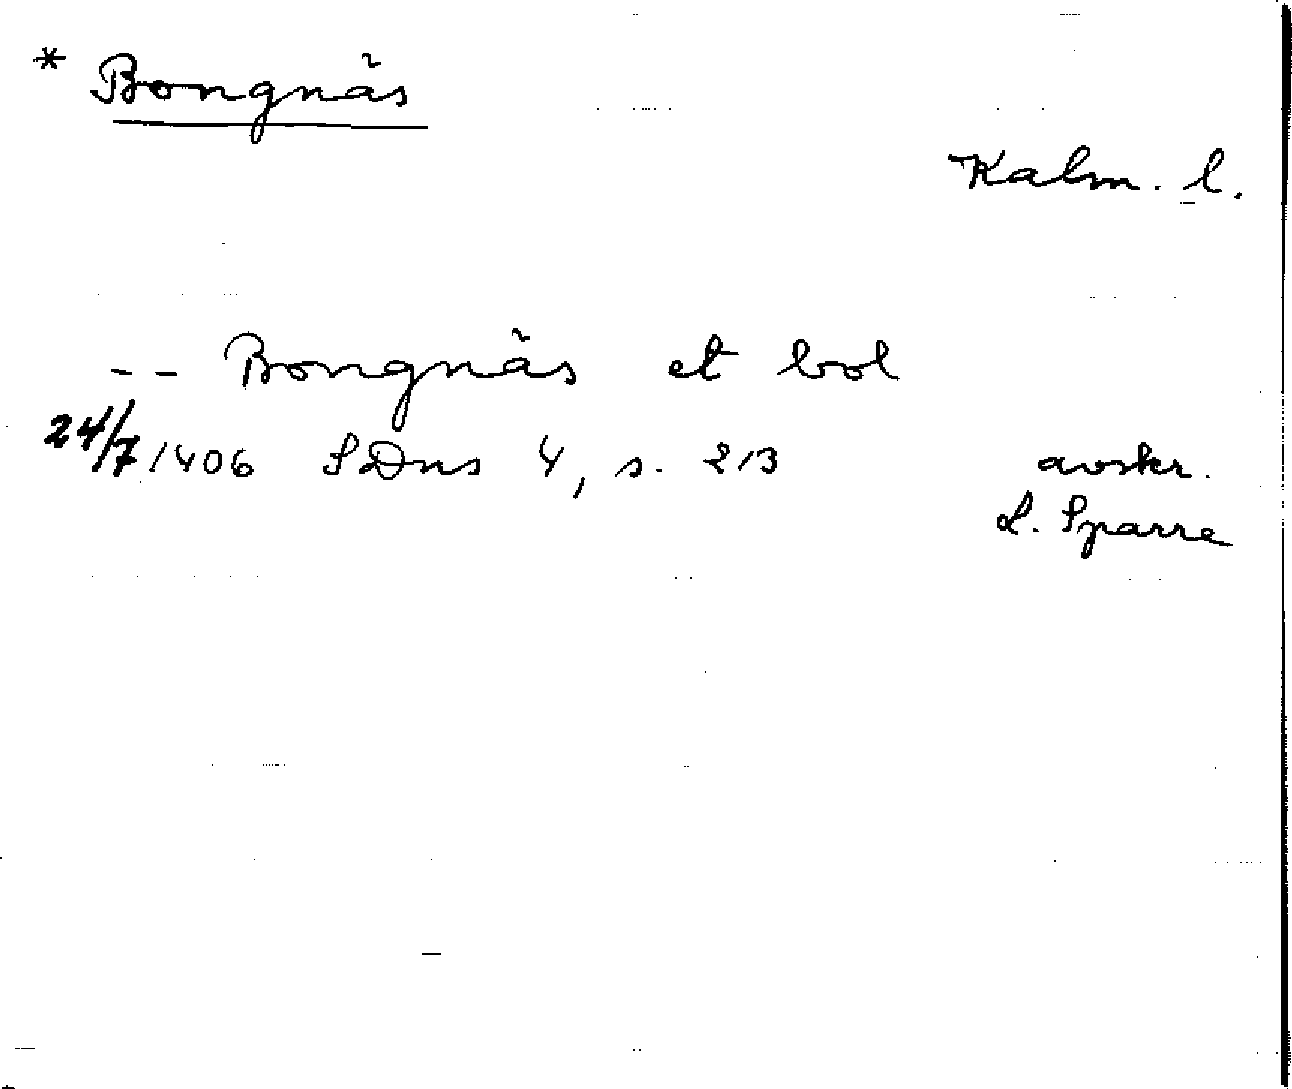 * Bongnäs
Kalm. l.
-- Bongnäs et bol
24/7 1406 SDns 4, s. 213 avskr.
L. Sparre